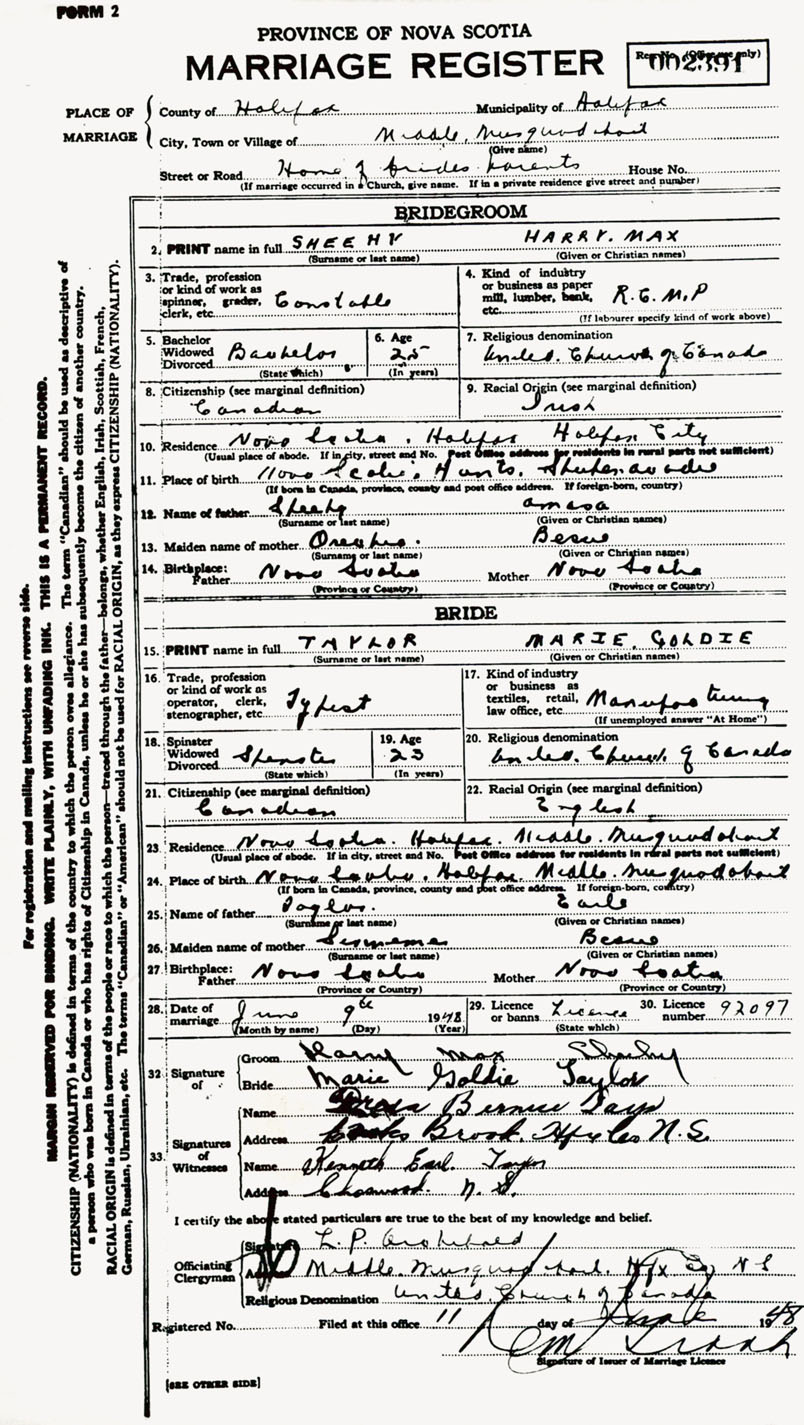 FORM 2
PROVINCE OF NOVA SCOTIA
MARRIAGE REGISTER
Reg. No. (Office use only)
002391
PLACE OF MARRIAGE
County of Halifax Municipality of Halifax
City, Town or Village of Middle Musquodoboit
(Give name)
Street or Road Home of brides parents House No.
(If marriage occurred in a Church, give name. If in a private residence give street and number)
BRIDEGROOM
2. PRINT name in full SHEEHY HARRY. MAX
(Surname or last name) (Given or Christian names)
3. Trade, profession or kind of work as spinner, grader, clerk, etc. Constable
4. Kind of industry or business as paper mill, lumber, bank, etc. R.C.M.P
(If labourer specify kind of work above)
5. Bachelor Widowed Divorced Bachelor
(State which)
6. Age 25
(In years)
7. Religious denomination United Church of Canada
8. Citizenship (see marginal definition)
Canadian
9. Racial Origin (see marginal definition)
Irish
10. Residence Nova Scotia. Halifax Halifax City
(Usual place of abode. If in city, street and No. Post Office address for residents in rural parts not sufficient)
11. Place of birth Nova Scotia, Hants. Shubenacadie
(If born in Canada, province, county and post office address. If foreign-born, country)
12. Name of father Sheehy Amasa
(Surname or last name) (Given or Christian names)
13. Maiden name of mother
(Surname or last name) (Given or Christian names)
14. Birthplace: Father Nova Scotia Mother Nova Scotia
(Province or Country) (Province or Country)
BRIDE
15. PRINT name in full TAYLOR MARIE, GOLDIE
(Surname or last name) (Given or Christian names)
16. Trade, profession or kind of work as operator, clerk, stenographer, etc. Typest
17. Kind of industry or business as textiles, retail, law office, etc. Manufacturing
(If unemployed answer "At Home")
18. Spinster Widowed Divorced Spinster
(State which)
19. Age 23
(In years)
20. Religious denomination
United. Church of Canada
21. Citizenship (see marginal definition)
Canadian
22. Racial Origin (see marginal definition)
English
23. Residence Nova Scotia. Halifax. Middle. Musquodoboit
(Usual place of abode. If in city, street and No. Post Office address for residents in rural parts not sufficient)
24. Place of birth Nova Scotia. Halifax. Middle. Musquodoboit
(If born in Canada, province, county and post office address. If foreign-born, country)
25. Name of father Taylor. Earle
(Surname or last name) (Given or Christian names)
26. Maiden name of mother
(Surname or last name) (Given or Christian names)
27. Birthplace: Father Nova Scotia Mother Nova Scotia
(Province or Country) (Province or Country)
28. Date of marriage June 9th 1948
(Month by name) (Day) (Year)
29. Licence or banns Licence
(State which)
30. Licence number 92097
32. Signature of
Groom Harry Max Sheehy
Bride Marie Goldie Taylor
33. Signatures of Witnesses
Name Bernice
Address Cooks Brook. Hfx Co N.S.
Name Kenneth Earl. Taylor
Address Chaswood. N.S.
I certify the above stated particulars are true to the best of my knowledge and belief.
Officiating Clergyman
Signature L.P. Archibald
Address Middle. Musquodoboit. Hfx Co N S
Religious Denomination United Church of Canada
Registered No. Filed at this office 11 day of June 1948
Signature of Issuer of Marriage Licence
[SEE OTHER SIDE]
For registration and mailing instructions see reverse side.
MARGIN RESERVED FOR BINDING. WRITE PLAINLY, WITH UNFADING INK. THIS IS A PERMANENT RECORD.
CITIZENSHIP (NATIONALITY) is defined in terms of the country to which the person owes allegiance. The term "Canadian" should be used as descriptive of
a person who was born in Canada or who has rights of Citizenship in Canada, unless he or she has subsequently become the citizen of another country.
RACIAL ORIGIN is defined in terms of the people or race to which the person—traced through the father—belongs, whether English, Irish, Scottish, French,
German, Russian, Ukrainian, etc. The terms "Canadian" or "American" should not be used for RACIAL ORIGIN, as they express CITIZENSHIP (NATIONALITY).